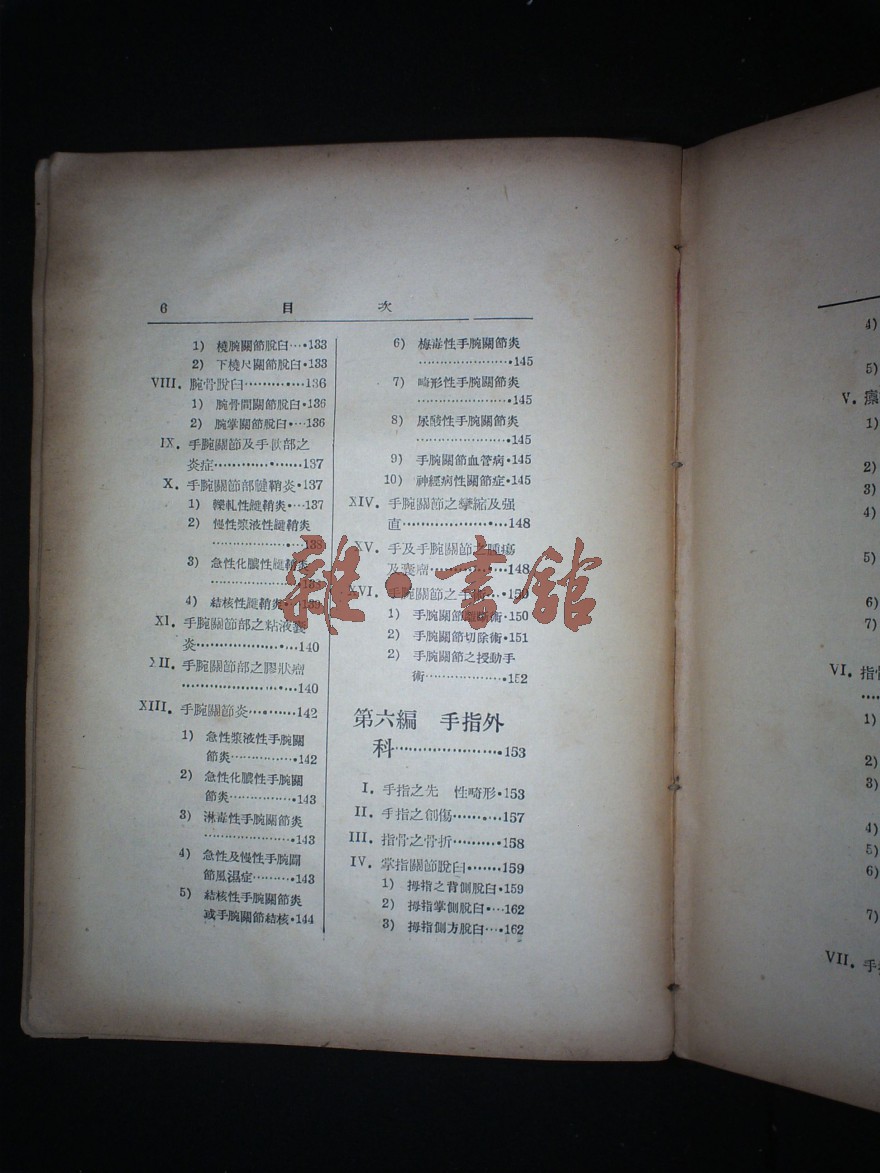 6 目 次
1) 橈腕關節脫臼····133
2) 下橈尺關節脫臼·133
VIII. 腕骨脫臼············136
1) 腕骨間關節脫臼·136
2) 腕掌關節脫臼··136
IX. 手腕關節及手 部之
炎症·················137
X. 手腕關節部腱鞘炎·137
1) 轢軋性腱鞘炎····137
2) 慢性漿液性腱鞘炎
·····················138
3) 急性化膿性腱鞘炎
·····················138
4) 結核性腱鞘炎····139
XI. 手腕關節部之粘液囊
炎·····················140
XII. 手腕關節部之膠狀瘤
·····················140
XIII. 手腕關節炎···········142
1) 急性漿液性手腕關
節炎···············142
2) 急性化膿性手腕關
節炎···············143
3) 淋毒性手腕關節炎
·····················143
4) 急性及慢性手腕關
節風濕症·········143
5) 結核性手腕關節炎
或手腕關節結核·144
6) 梅毒性手腕關節炎
·····················145
7) 畸形性手腕關節炎
·····················145
8) 尿酸性手腕關節炎
·····················145
9) 手腕關節血管病·145
10) 神經病性關節症·145
XIV. 手腕關節之攣縮及强
直·····················148
XV. 手及手腕關節之腫瘍
及囊瘤···············148
XVI. 手腕關節之手術···150
1) 手腕關節 術·150
2) 手腕關節切除術·151
2) 手腕關節之授動手
術··················152
第六編 手指外
科·····················153
I. 手指之先 性畸形·153
II. 手指之創傷·········157
III. 指骨之骨折·········158
IV. 掌指關節脫臼·······159
1) 拇指之背側脫臼·159
2) 拇指掌側脫臼····162
3) 拇指側方脫臼····162
雜·書館
4)
5)
V. 瘭
1)
2)
3)
4)
5)
6)
7)
VI. 指骨
1)
2)
3)
4)
5)
6)
7)
VII. 手